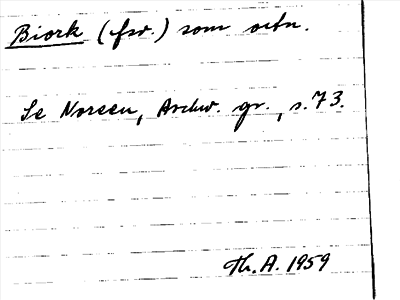 Biork (fsv.) som ortn.
Se Noreen, Aschw. gr., s. 73.
Th. A. 1959